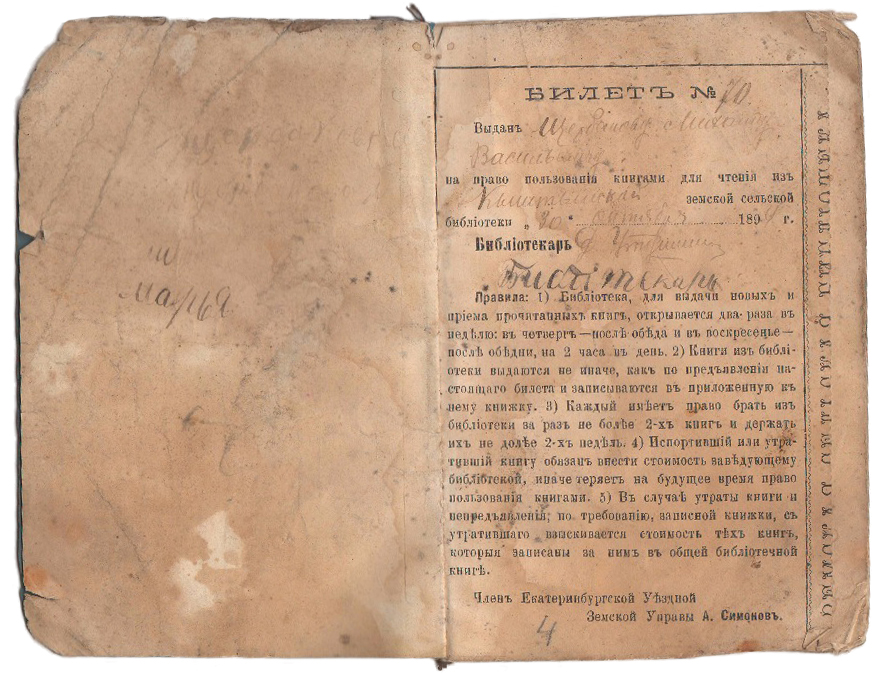 ш
марья
БИЛЕТЪ № 70.
Выданъ Михаилу
Васильевичу
на право пользованія книгами для чтенія изъ
земской сельской
библіотеки „30“ октября 189 г.
Библіотекарь
Библіотекарь
Правила: 1) Библіотека, для выдачи новыхъ и
пріема прочитанныхъ книгъ, открывается два раза въ
недѣлю: въ четвергъ—послѣ обѣда и въ воскресенье—
послѣ обѣдни, на 2 часа въ день. 2) Книги изъ библі-
отеки выдаются не иначе, какъ по предъявленіи на-
стоящаго билета и записываются въ приложенную къ
нему книжку. 3) Каждый имѣетъ право брать изъ
библіотеки за разъ не болѣе 2-хъ книгъ и держать
ихъ не долѣе 2-хъ недѣль. 4) Испортившій или утра-
тившій книгу обязанъ внести стоимость завѣдующему
библіотекой, иначе теряетъ на будущее время право
пользованія книгами. 5) Въ случаѣ утраты книги и
непредъявленія, по требованію, записной книжки, съ
утратившаго взыскивается стоимость тѣхъ книгъ,
которыя записаны за нимъ въ общей библіотечной
книгѣ.
Членъ Екатеринбургской Уѣздной
Земской Управы А. Симоновъ.
4